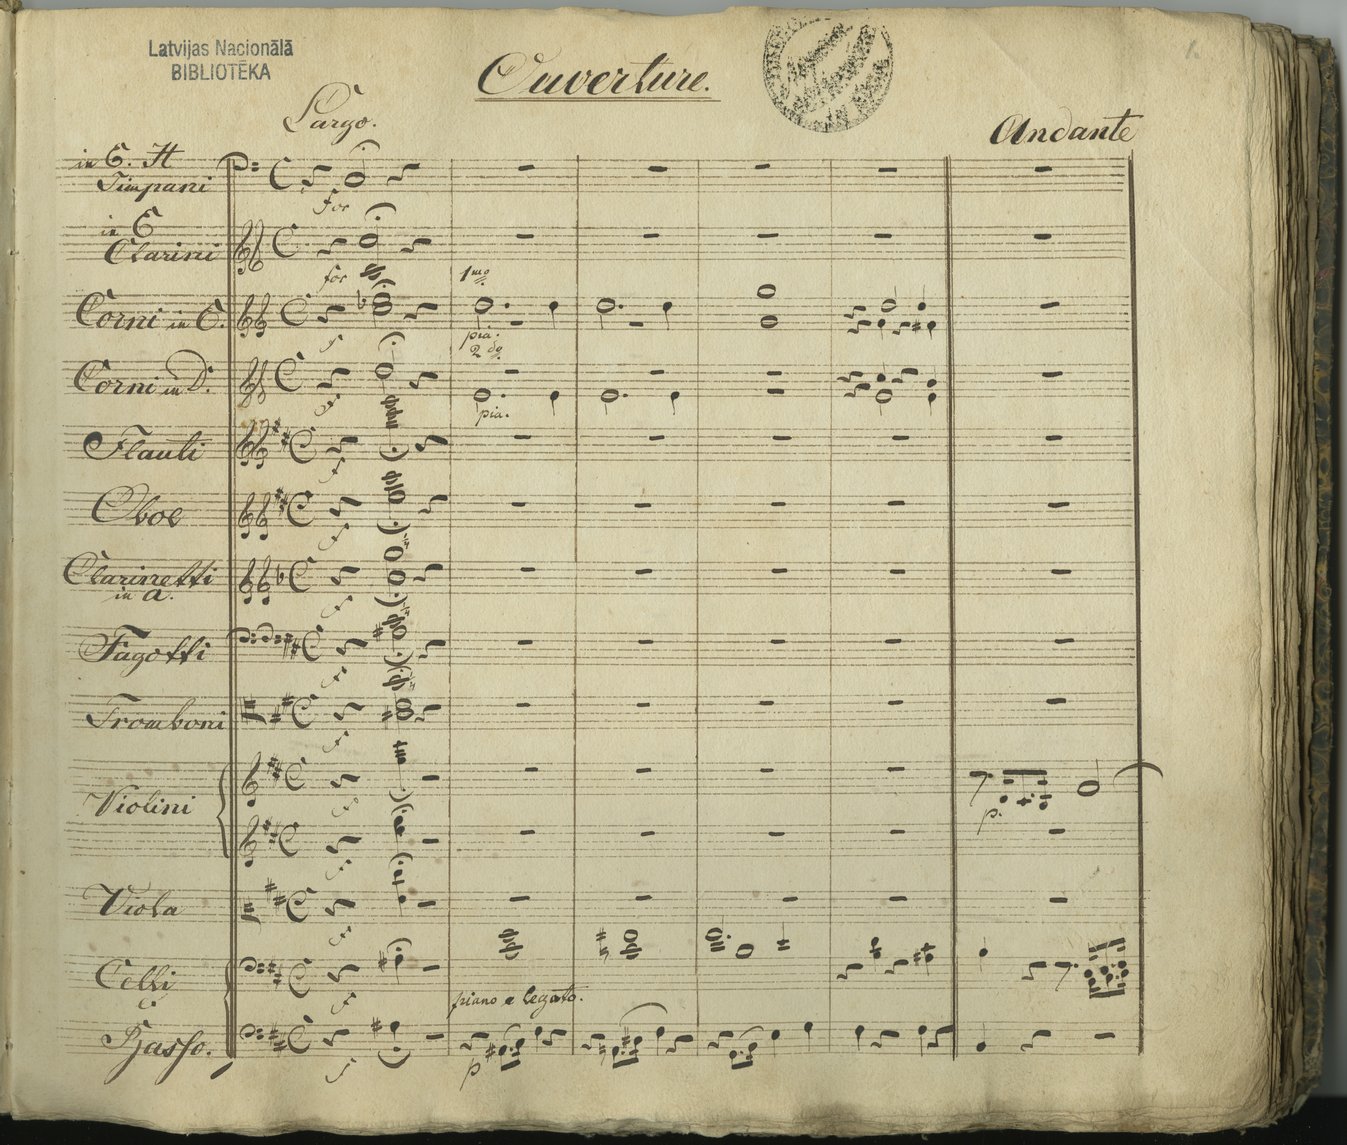 Latvijas Nacionālā
BIBLIOTĒKA
Ouverture.
Largo.
Andante
in E. H
Timpani
for
in E
Clarini
for
1mo
Corni in E.
pia.
2do
Corni in D.
pia.
Flauti
f
Oboe
Clarinetti
in a.
Fagotti
Tromboni
Violini
p.
Viola
Celli
e
piano e legato.
Basso.
f
p